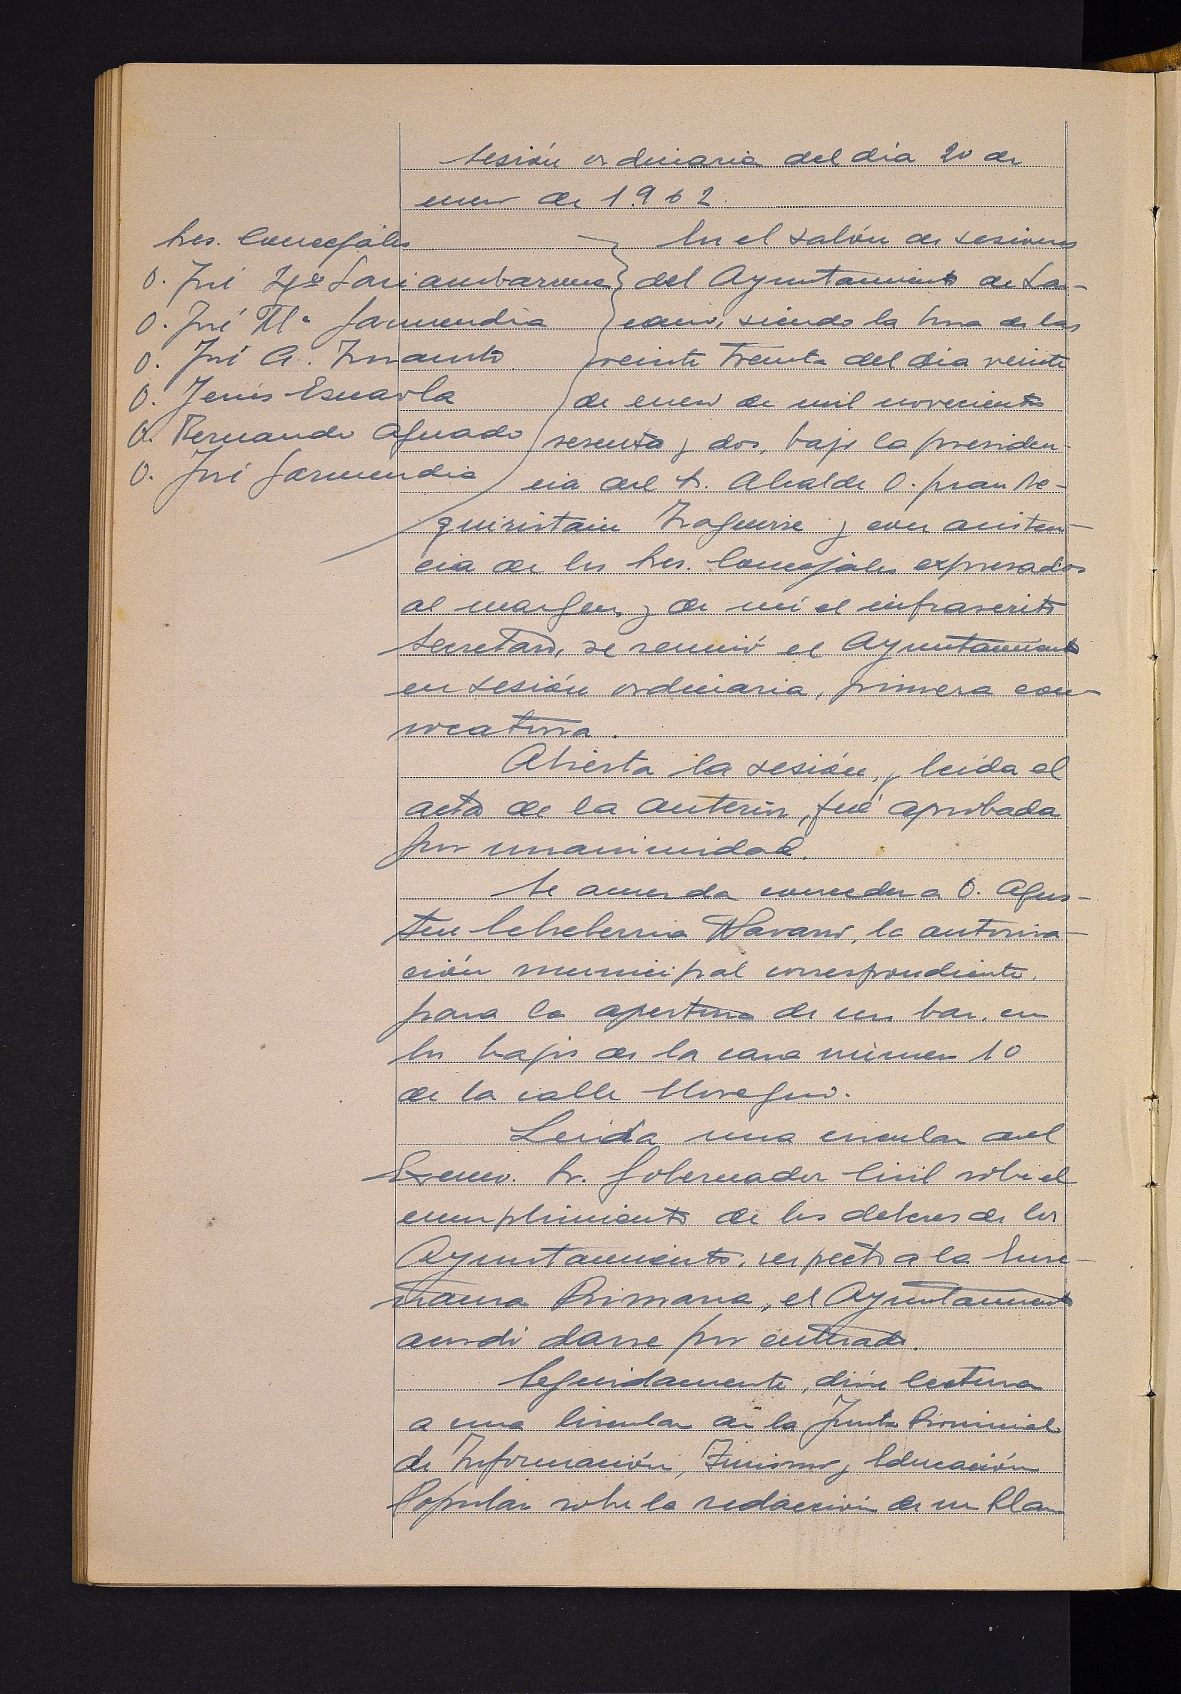 Sesión ordinaria del dia 20 de
enero de 1.962.
Sres. Concejales
D. José Ygº Gariambarrena
D. José Mª Garmendia
D. José A. Irnausto
D. Jesús Esnaola
D. Fernando Aguado
D. José Garmendia
En el salón de sesiones
del Ayuntamiento de Laz-
cano, siendo la hora de las
veinte treinta del dia veinte
de enero de mil novecientos
sesenta y dos, bajo la presiden-
cia del Sr. Alcalde D. Juan Se-
guiristain Izaguirre y con asisten-
cia de los Sres. Concejales expresados
al margen, y de mí el infrascrito
Secretario, se reunió el Ayuntamiento
en sesión ordinaria, primera con-
vocatoria.
Abierta la sesión, y leida el
acta de la anterior, fué aprobada
por unanimidad.
Se acuerda conceder a D. Agus-
tin Echeberria Navarro, la autoriza-
ción municipal correspondiente,
para la apertura de un bar, en
los bajos de la casa número 10
de la calle Elosegui.
Leida una circular del
Excmo. Sr. Gobernador Civil sobre el
cumplimiento de los deberes de los
Ayuntamientos, respecto a la Ense-
ñanza Primaria, el Ayuntamiento
acordó darse por enterado.
Seguidamente, dióse lectura
a una Circular de la Junta Provincial
de Información, Turismo y Educación
Popular sobre la redacción de un Plan